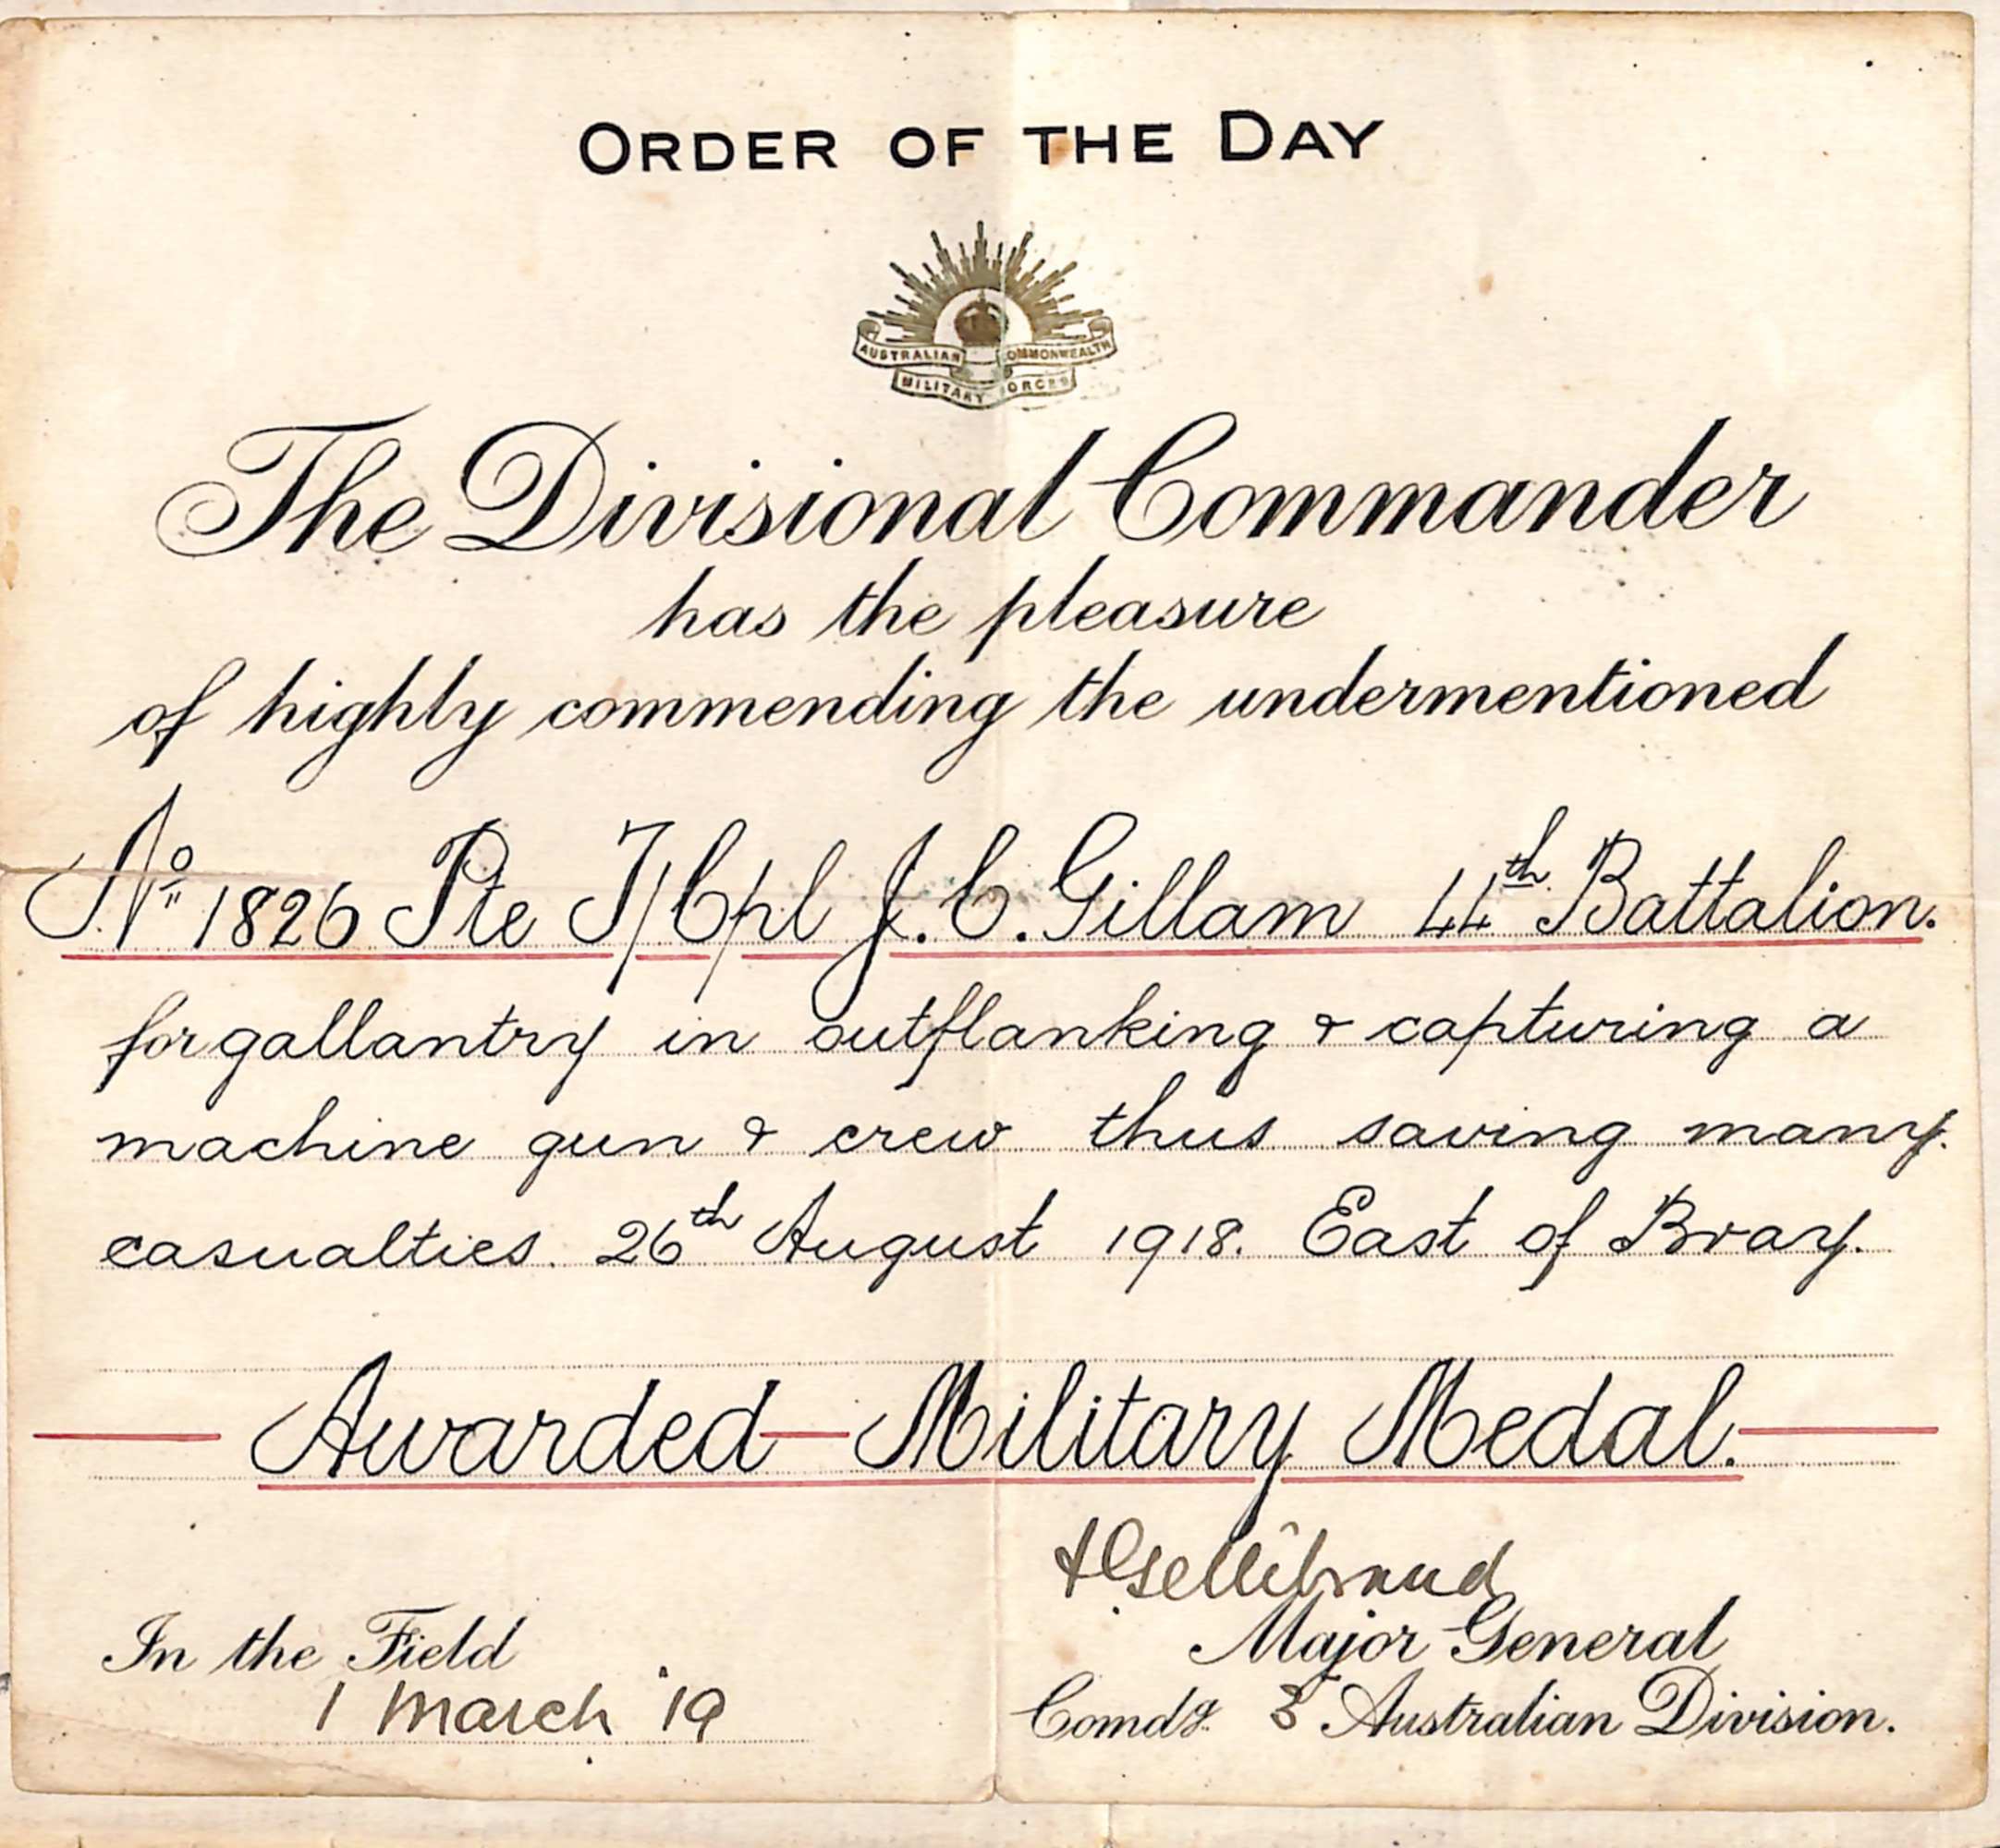 ORDER OF THE DAY
AUSTRALIAN COMMONWEALTH
MILITARY FORCES
The Divisional Commander
has the pleasure
of highly commending the undermentioned
No 1826 Pte T/Cpl J. C. Gillam 44th Battalion.
for gallantry in outflanking & capturing a
machine gun & crew thus saving many
casualties. 26th August 1918. East of Bray.
Awarded Military Medal.
H Gellibrand
Major General
In the Field
1 March '19
Comdg. 3 Australian Division.